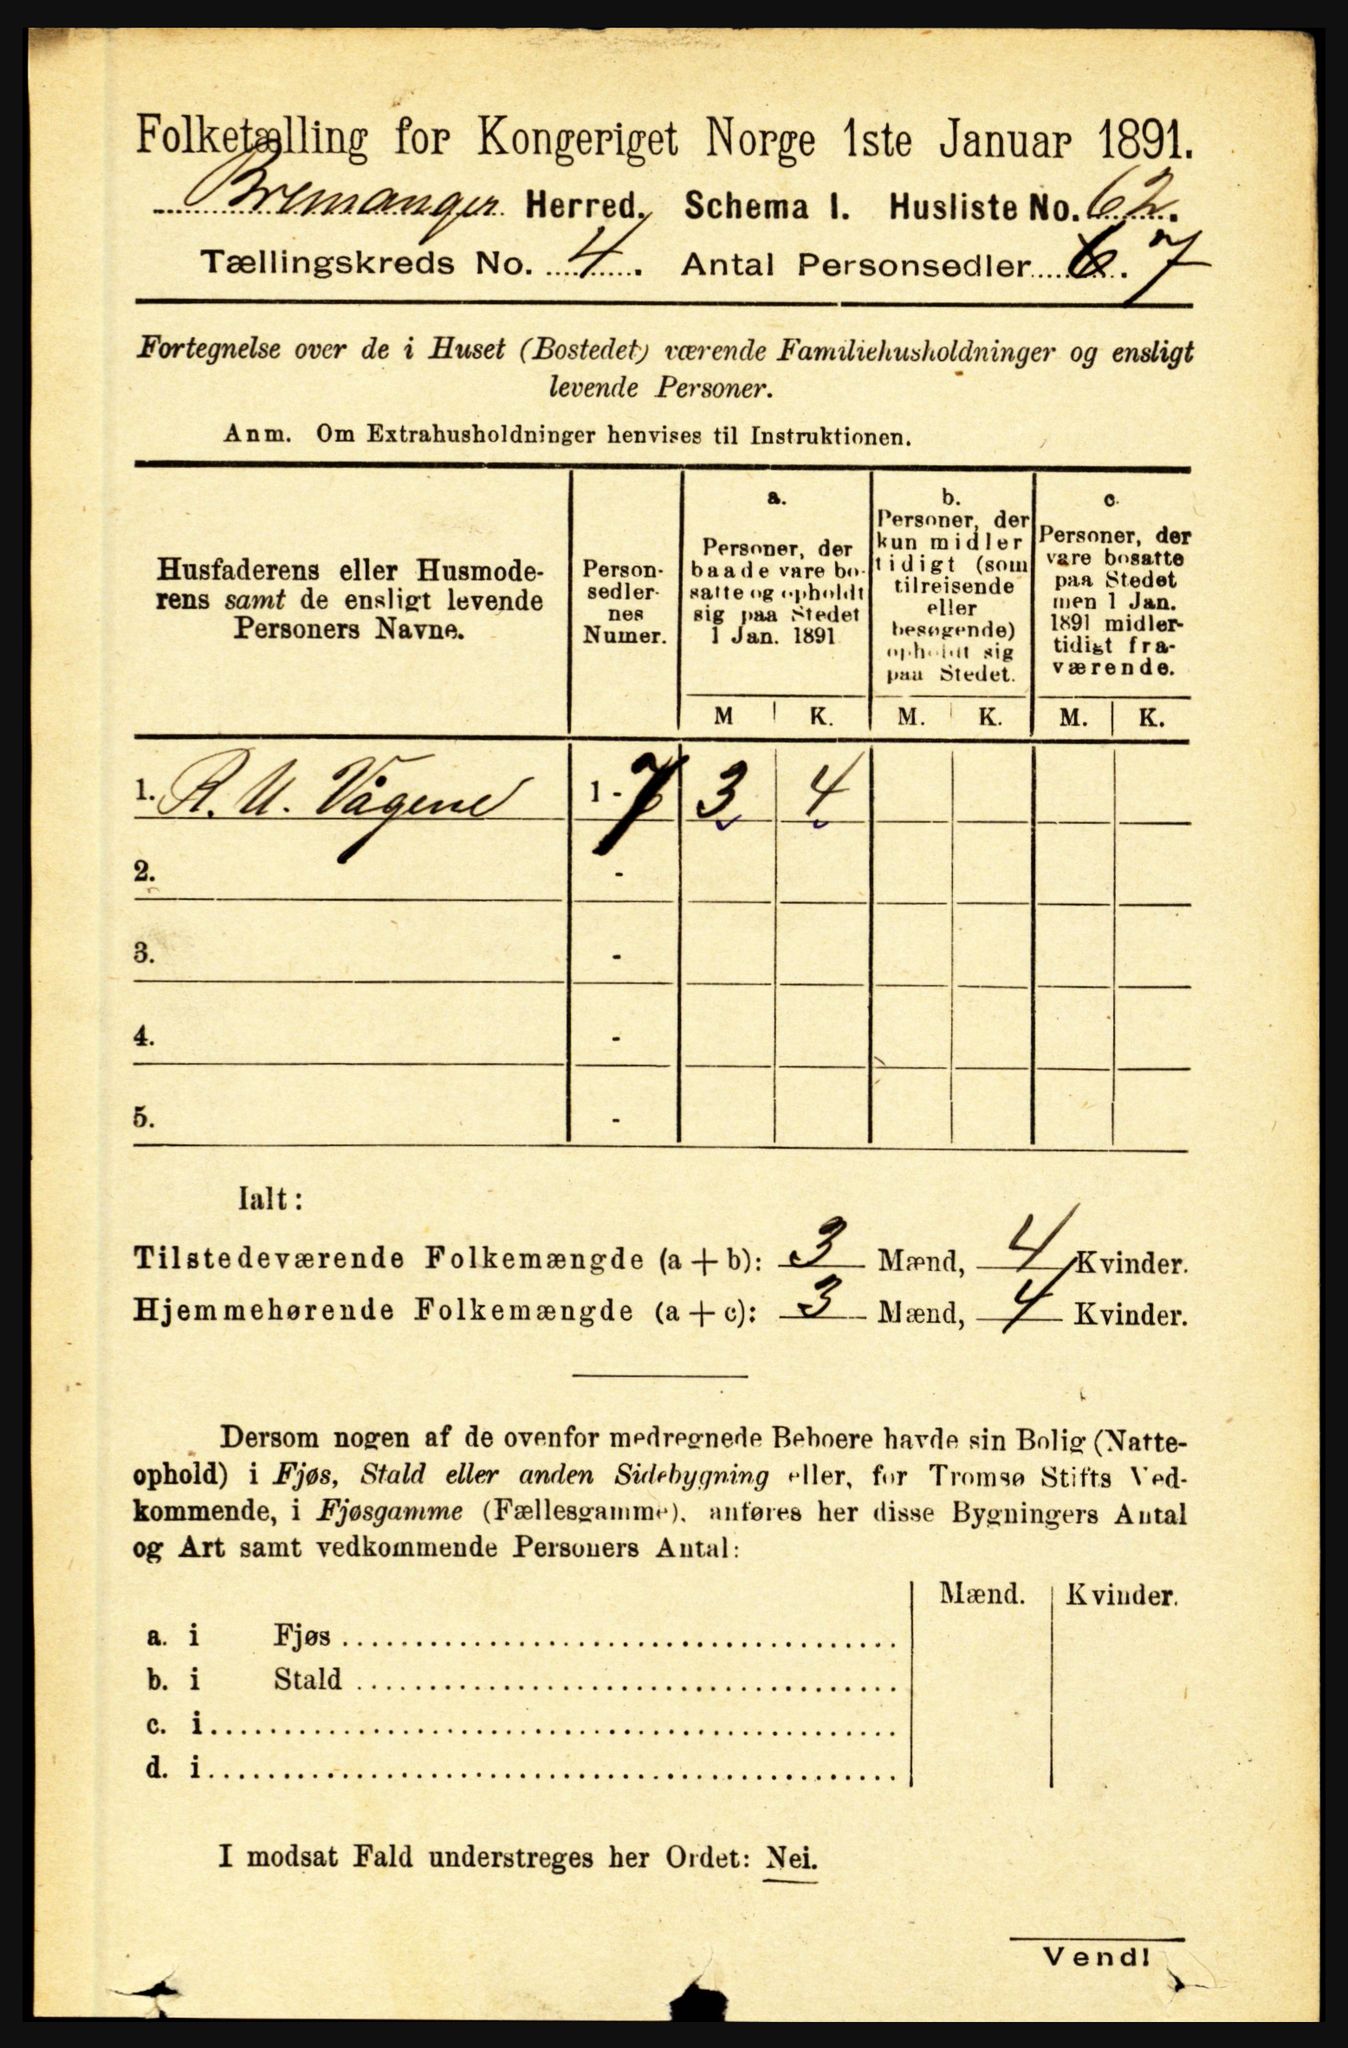 Folketælling for Kongeriget Norge 1ste Januar 1891.
Bremanger Herred. Schema I. Husliste No. 62.
Tællingskreds No. 4. Antal Personsedler 6. 7
Fortegnelse over de i Huset (Bostedet) værende Familiehusholdninger og ensligt
levende Personer.
Anm. Om Extrahusholdninger henvises til Instruktionen.
Husfaderens eller Husmode-
rens samt de ensligt levende
Personers Navne.
Person-
sedler-
nes
Numer.
a.
Personer, der
baade vare bo-
satte og opholdt
sig paa Stedet
1 Jan. 1891
b.
Personer, der
kun midler
tidigt (som
tilreisende
eller
besøgende)
opholdt sig
paa Stedet.
c.
Personer, der
vare bosatte
paa Stedet
men 1 Jan.
1891 midler-
tidigt fra-
værende.
M K. M. K. M. K.
1. R. U. Vågene 1 - 7 3 4
2. -
3. -
4. -
5. -
Ialt:
Tilstedeværende Folkemængde (a + b): 3 Mænd, 4 Kvinder.
Hjemmehørende Folkemængde (a + c): 3 Mænd, 4 Kvinder.
Dersom nogen af de ovenfor medregnede Beboere havde sin Bolig (Natte-
ophold) i Fjøs, Stald eller anden Sidebygning eller, for Tromsø Stifts Ved-
kommende, i Fjøsgamme (Fællesgamme), anføres her disse Bygningers Antal
og Art samt vedkommende Personers Antal:
Mænd. Kvinder.
a. i Fjøs
b. i Stald
c. i
d. i
I modsat Fald understreges her Ordet: Nei.
Vend!